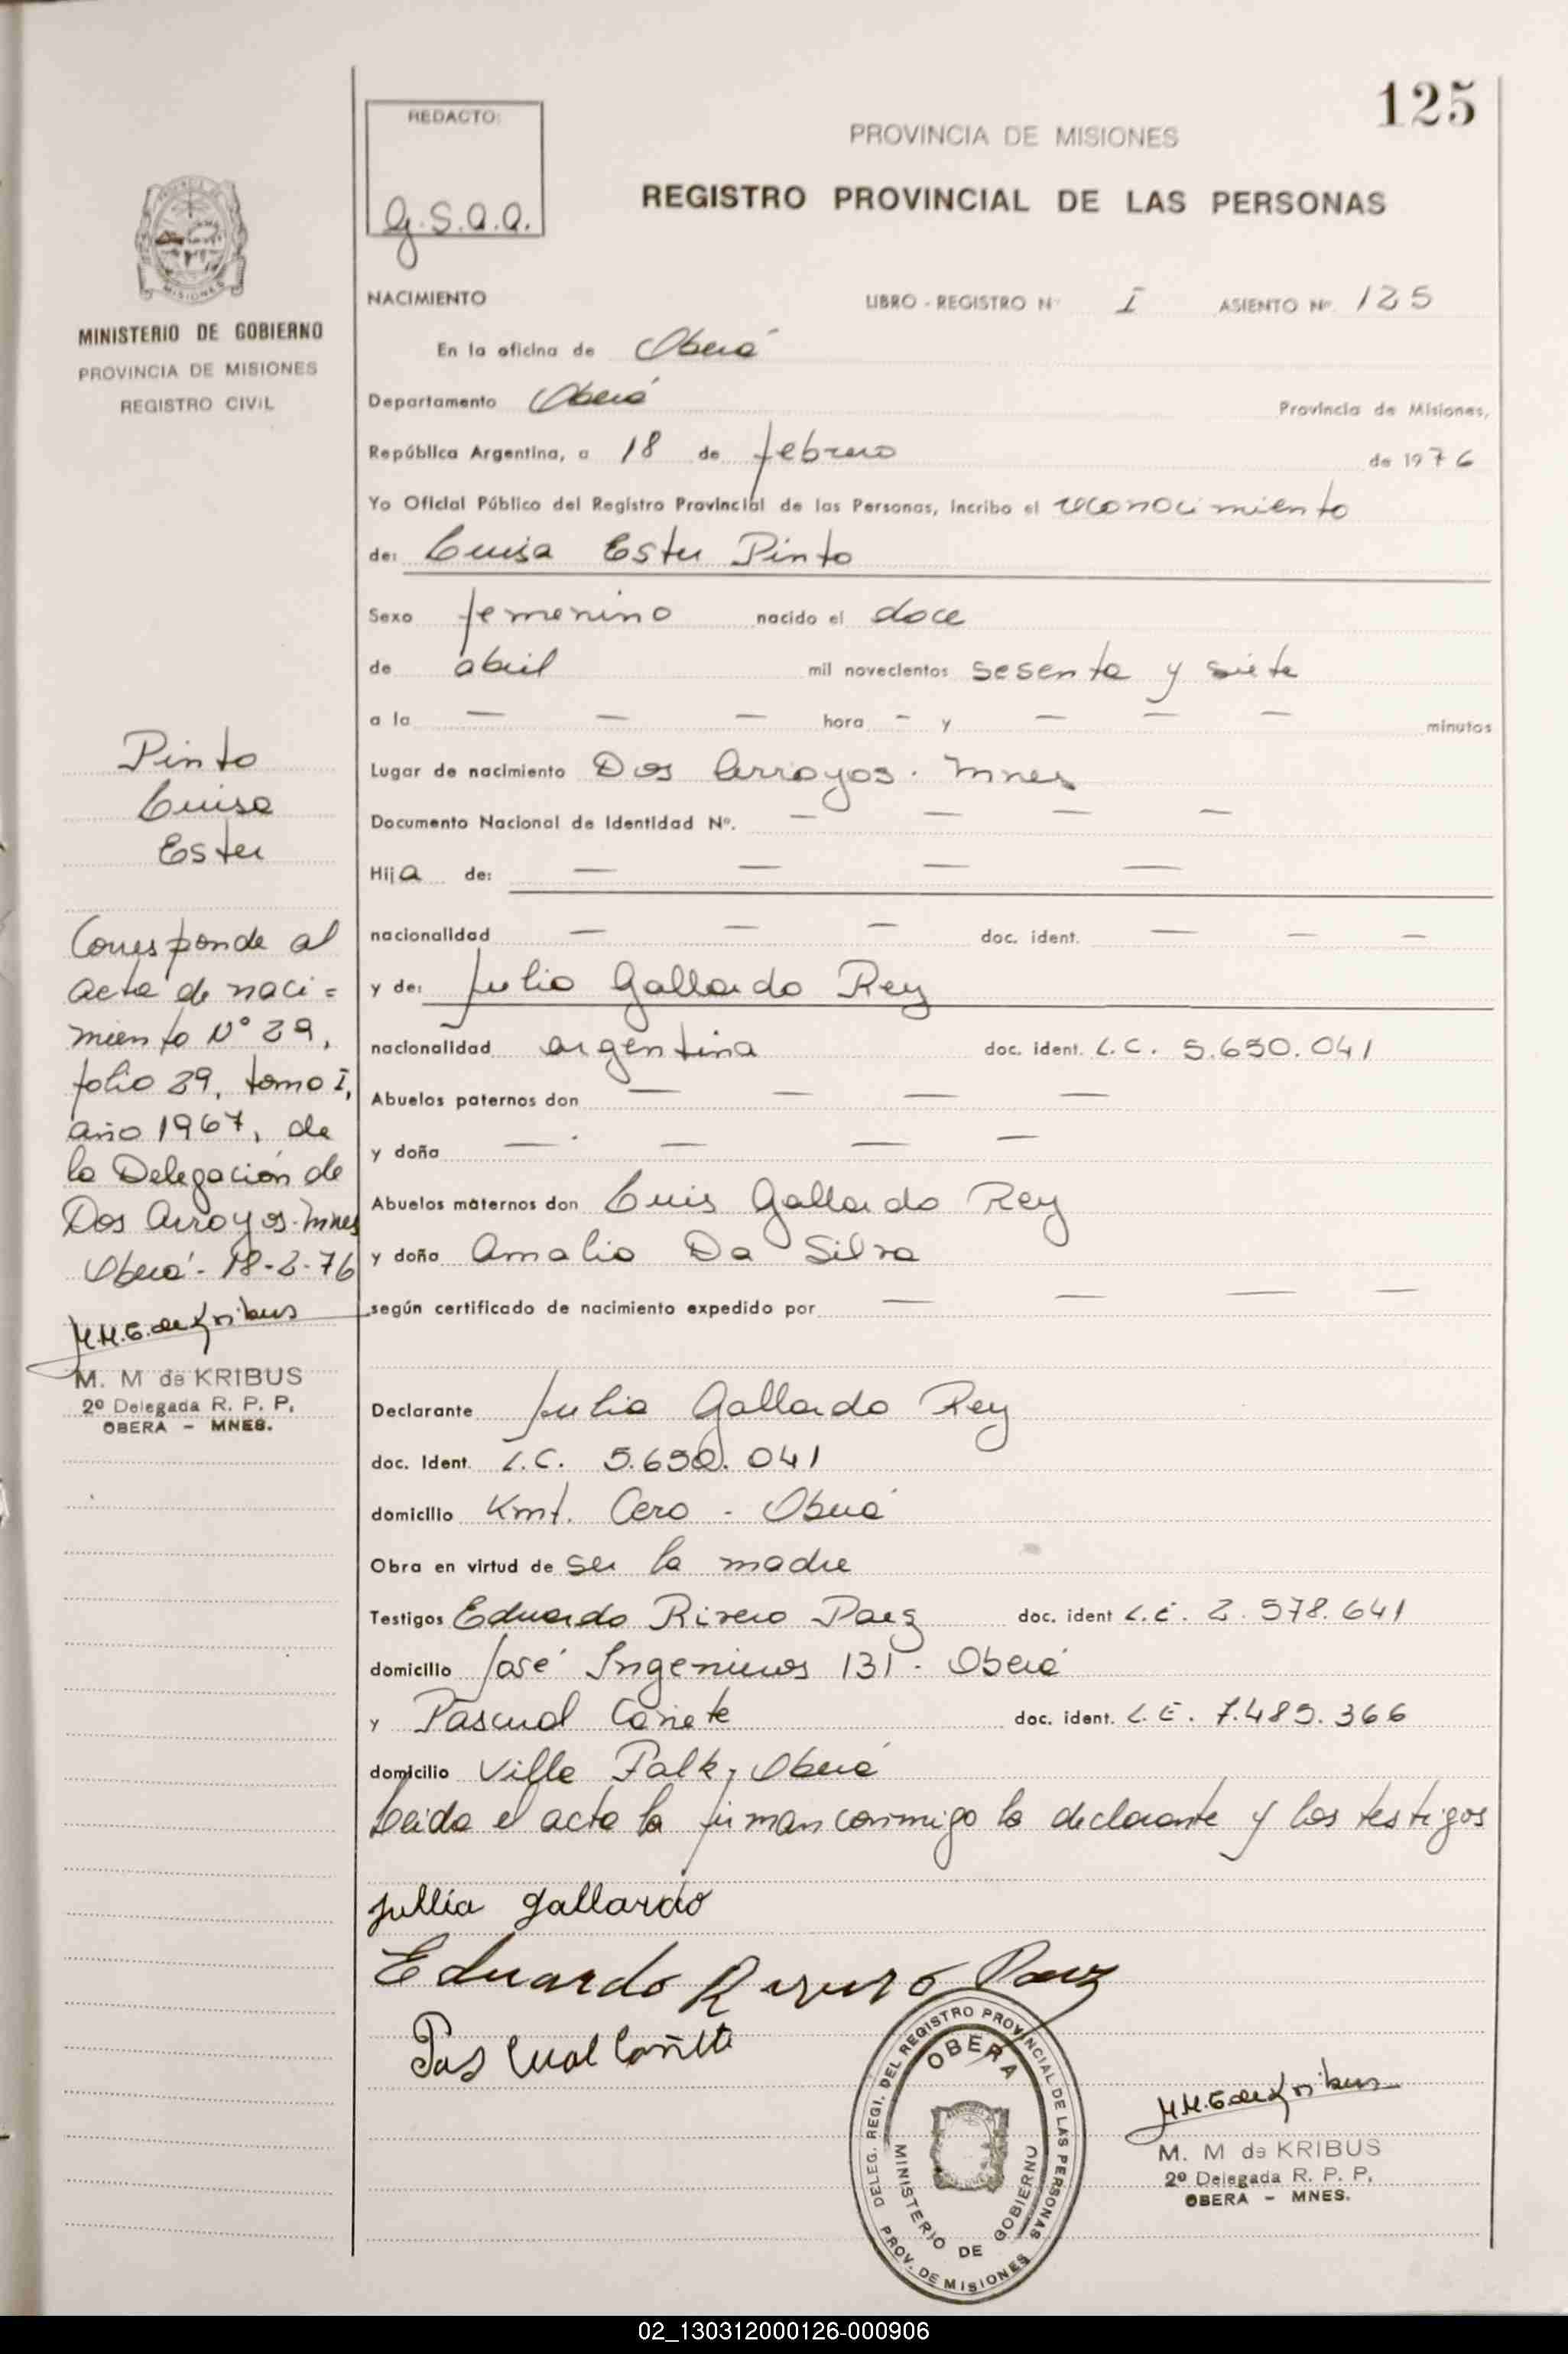 125
REDACTO:
G.S.A.A.
PROVINCIA DE MISIONES
REGISTRO PROVINCIAL DE LAS PERSONAS
MISIONES
MINISTERIO DE GOBIERNO
PROVINCIA DE MISIONES
REGISTRO CIVIL
NACIMIENTO LIBRO - REGISTRO Nº I ASIENTO Nº. 125
En la oficina de Oberá
Departamento Oberá Provincia de Misiones,
República Argentina, a 18 de febrero de 1976
Yo Oficial Público del Registro Provincial de las Personas, incribo el reconocimiento
de: Luisa Ester Pinto
Sexo femenino nacido el doce
de abril mil novecientos sesenta y siete
a la — — — hora - y — — — minutos
Lugar de nacimiento Dos Arroyos. Mnes
Documento Nacional de Identidad Nº. — — — —
Hija de: — — — —
nacionalidad — — — doc. ident. — — —
y de: Julia Gallardo Rey
nacionalidad argentina doc. ident. L.C. 5.650.041
Abuelos paternos don — — — —
y doña — — — —
Abuelos maternos don Luis Gallardo Rey
y doña Amalia Da Silva
según certificado de nacimiento expedido por — — — —
Declarante Julia Gallardo Rey
doc. Ident. L.C. 5.650.041
domicilio Kmt. Cero - Oberá
Obra en virtud de ser la madre
Testigos Eduardo Rivero Paez doc. ident L.E. 2.578.641
domicilio José Ingenieros 131 - Oberá
y Pascual Cañete doc. ident. L.E. 7.485.366
domicilio Villa Falk, Oberá
Leida el acta la firman conmigo la declarante y los testigos
Jullia gallardo
Eduardo Rivero Paez
Pascual Cañete
Pinto
Luisa
Ester
Corresponde al
acta de naci=
miento Nº 29,
folio 29, tomo I,
año 1967, de
la Delegación de
Dos Arroyos-Mnes
Oberá - 18-2-76
M.M.G. de Kribus
M. M de KRIBUS
2º Delegada R. P. P.
OBERA - MNES.
DELEG. REGI. DEL REGISTRO PROVINCIAL DE LAS PERSONAS
OBERA
MINISTERIO DE GOBIERNO
PROV. DE MISIONES
M.M.G. de Kribus
M. M de KRIBUS
2º Delegada R. P. P.
OBERA - MNES.
02_130312000126-000906